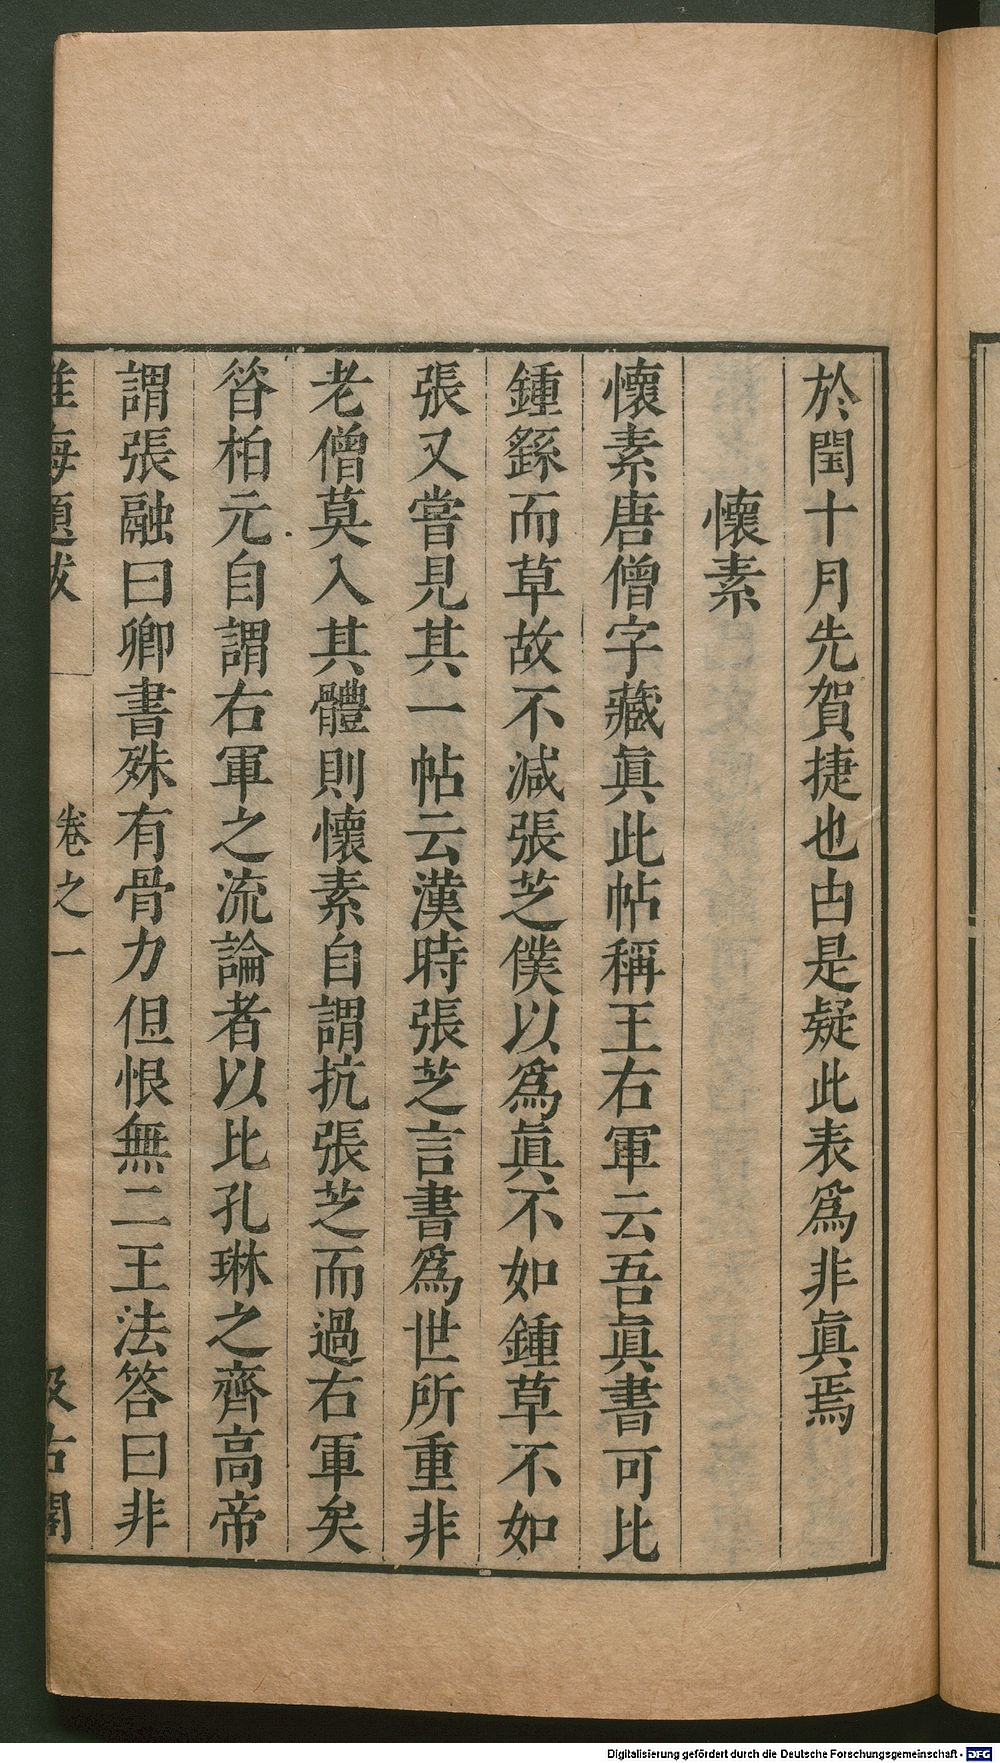 於閏十月先賀捷也由是疑此表爲非眞焉
懷素
懷素唐僧字藏眞此帖稱王右軍云吾眞書可比
鍾繇而草故不減張芝僕以爲眞不如鍾草不如
張又嘗見其一帖云漢時張芝言書爲世所重非
老僧莫入其體則懷素自謂抗張芝而過右軍矣
昝柏元自謂右軍之流論者以比孔琳之齊高帝
謂張融曰卿書殊有骨力但恨無二王法答曰非
淮海題跋 卷之一 汲古閣
Digitalisierung gefördert durch die Deutsche Forschungsgemeinschaft - DFG